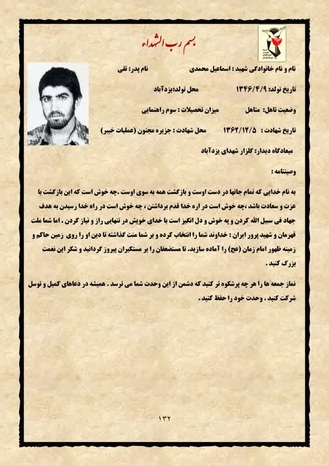 بسم رب الشهداء
نام و نام خانوادگی شهید : اسماعیل محمدی نام پدر: تقی
تاریخ تولد: ۱۳۴۶/۴/۹ محل تولد:یزدآباد
وضعیت تاهل: متاهل میزان تحصیلات : سوم راهنمایی
تاریخ شهادت : ۱۳۶۲/۱۲/۵ محل شهادت : جزیره مجنون (عملیات خیبر)
میعادگاه دیدار: گلزار شهدای یزدآباد
وصیتنامه :
به نام خدایی که تمام جانها در دست اوست و بازگشت همه به سوی اوست .چه خوش است که این بازگشت با
عزت و سعادت باشد ،چه خوش است در اره خدا قدم برداشتن ، چه خوش است در راه خدا رسیدن به هدف
جهاد فی سبیل الله کردن و به خوش و دل انگیز است با خدای خویش در تنهایی راز و نیاز کردن . اما شما ملت
قهرمان و شهید پرور ایران : خداوند شما را انتخاب کرده و بر شما منت گذاشته تا دین او را روی زمین حاکم و
زمینه ظهور امام زمان (عج) را آماده سازید. تا مستضعفان را بر مستکبران پیروز گردانید و شکر این نعمت
بزرگ کنید .
نماز جمعه ها را هر چه پرشکوه تر کنید که دشمن از این وحدت شما می ترسد . همیشه در دعاهای کمیل و توسل
شرکت کنید . وحدت خود را حفظ کنید .
۱۳۲